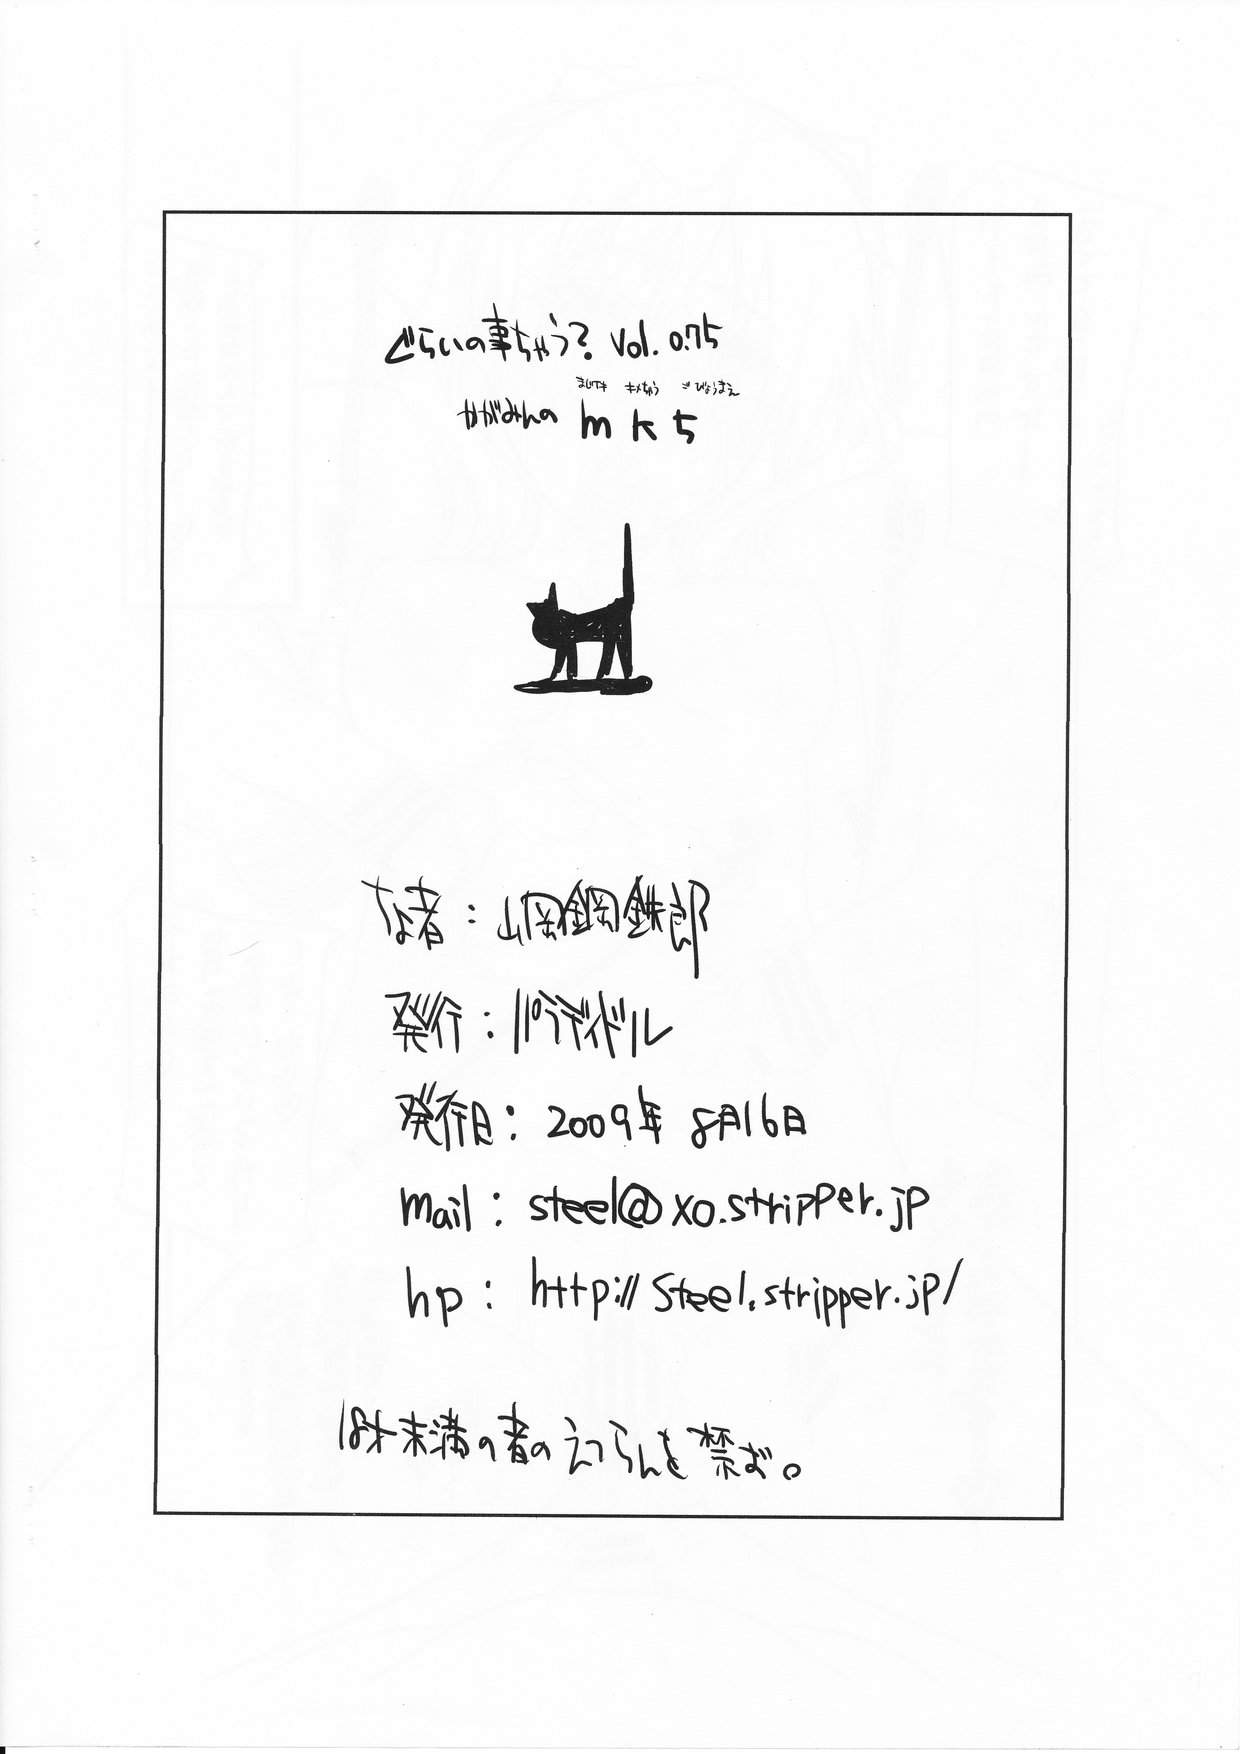 ぐらいの事ちゃう? Vol. 0.75
まじでキ キメちゃう ごびょうまえ
かがみんの mk5
な者:山岡鋼鉄郎
発行:パラディドル
発行日:2009年 8月16日
mail:steel@xo.stripper.jp
hp:http://steel.stripper.jp/
18才未満の者のえつらんを禁ず。